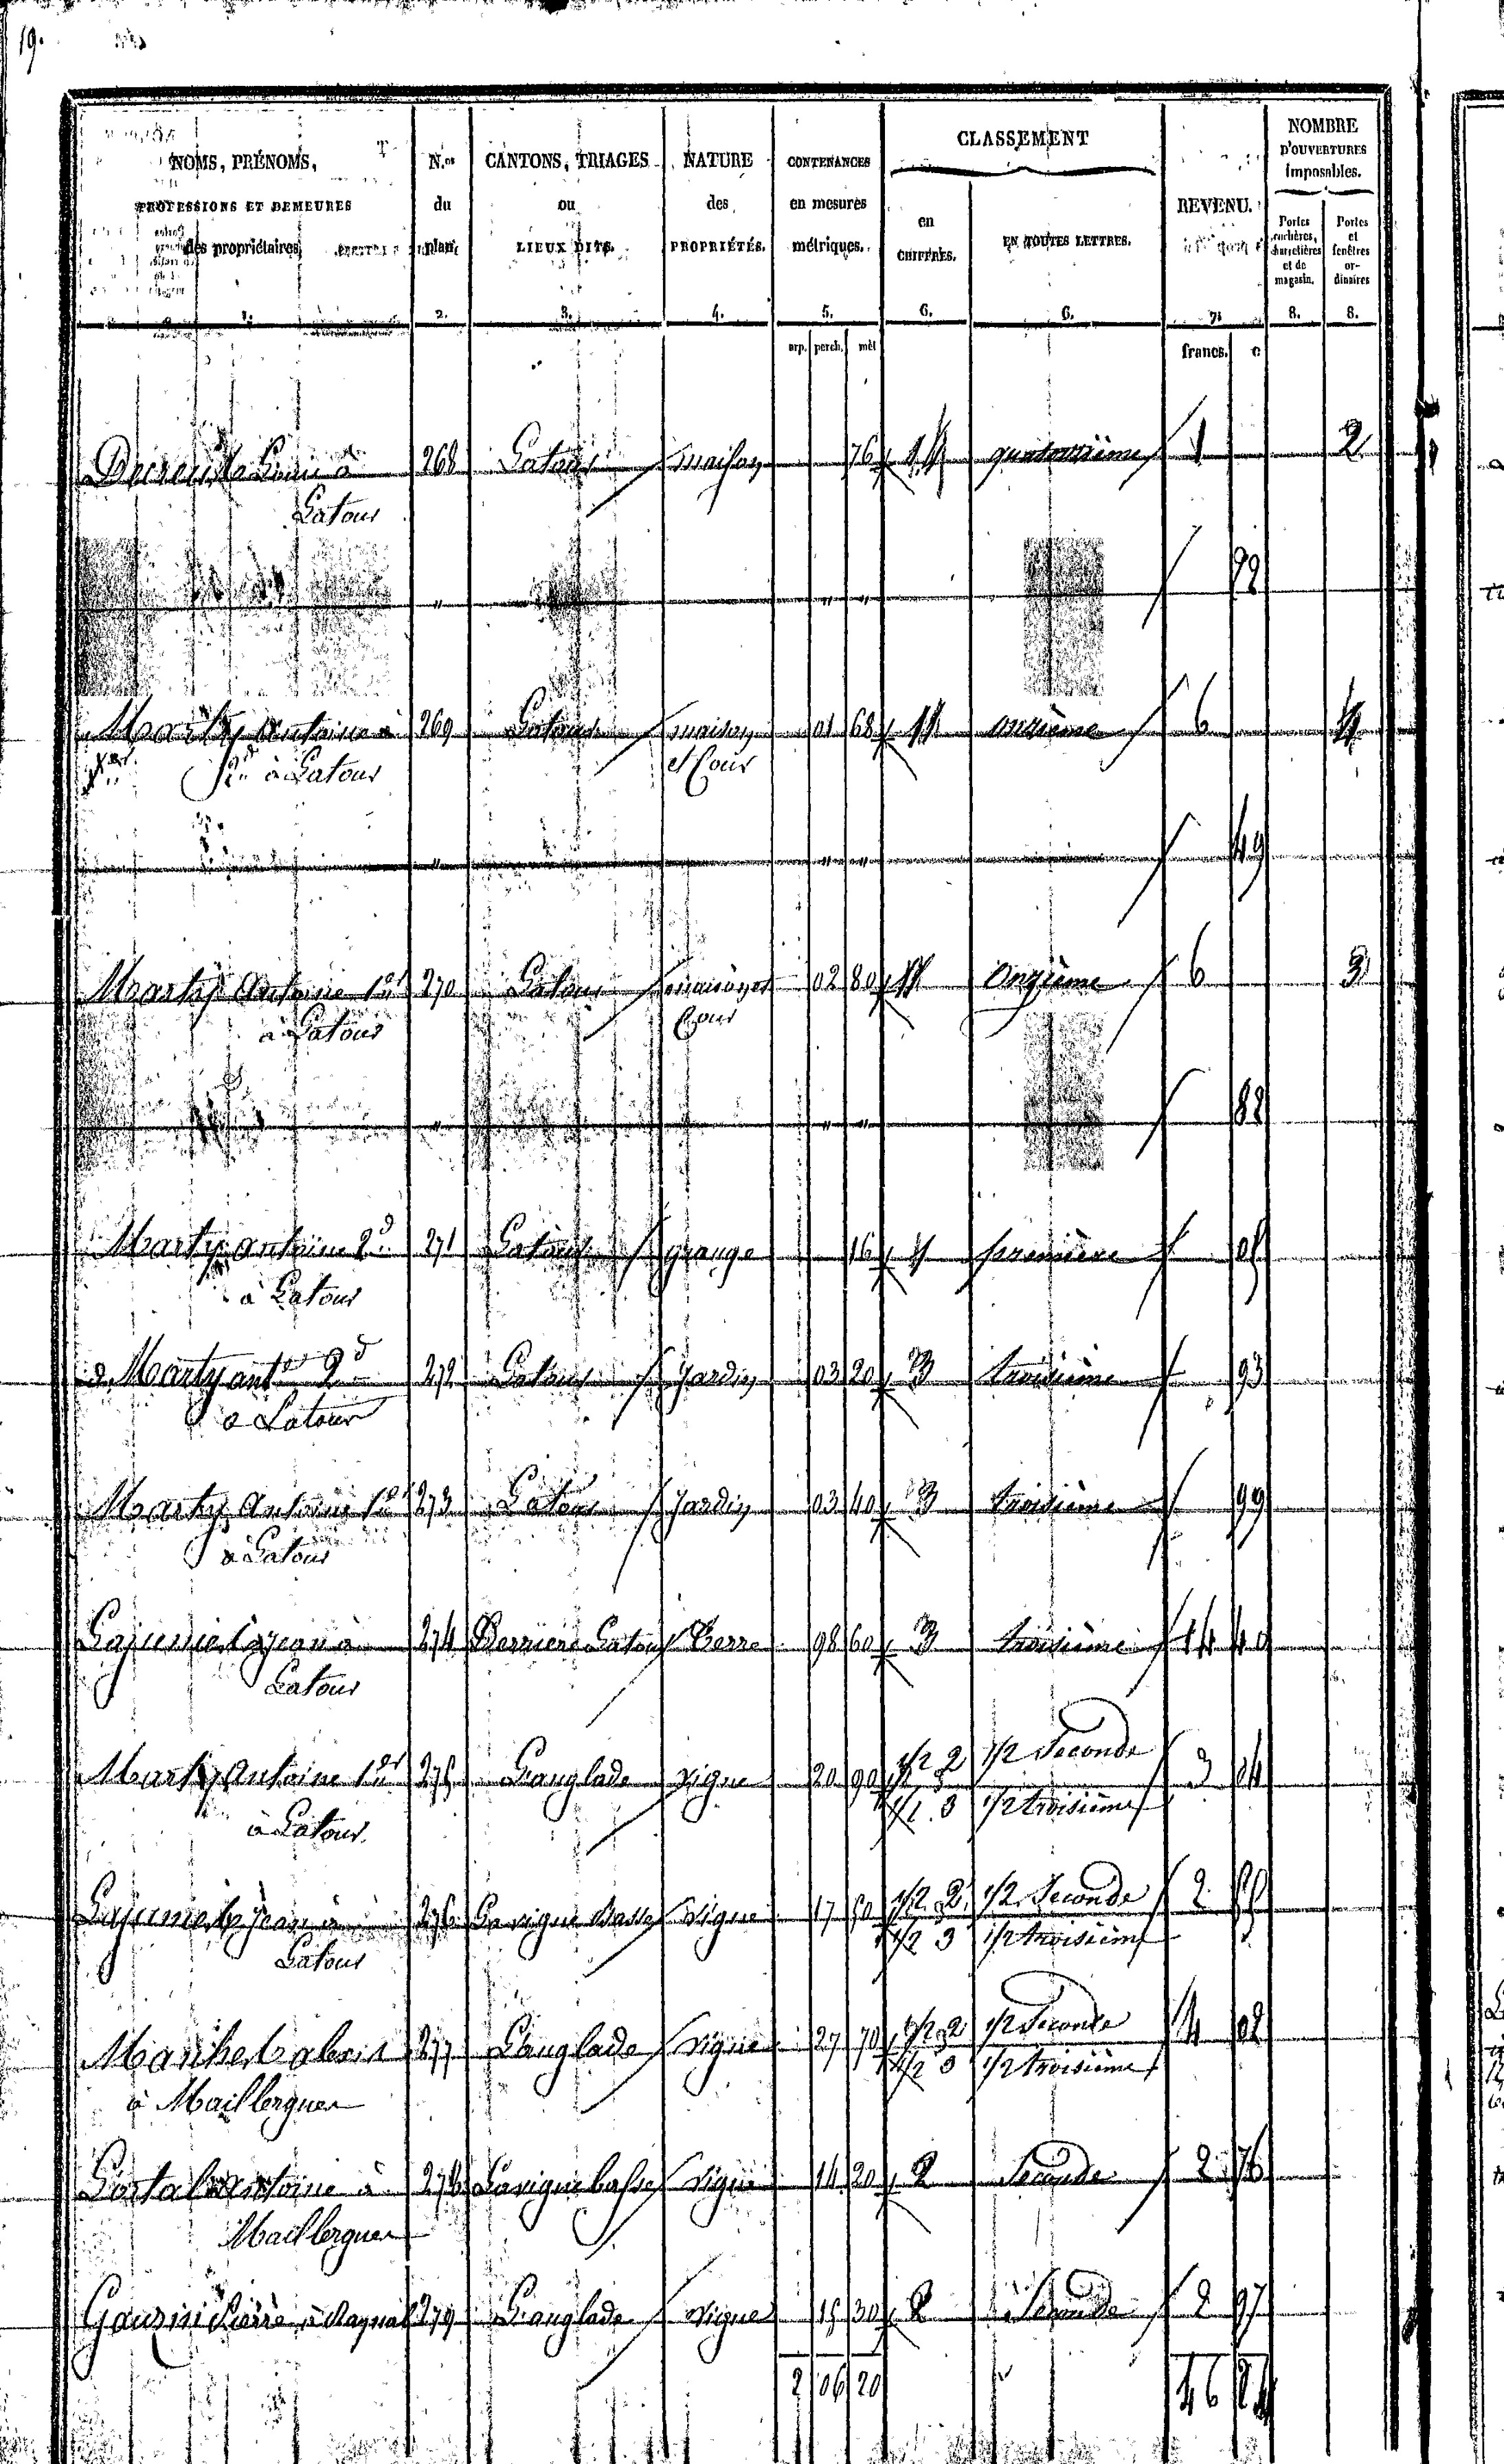 19.
NOMS, PRÉNOMS, PROFESSIONS ET DEMEURES des propriétaires. 1.
N.os du plan. 2.
CANTONS, TRIAGES ou LIEUX DITS. 3.
NATURE des PROPRIÉTÉS. 4.
CONTENANCES en mesures métriques. 5.
CLASSEMENT
en CHIFFRES. 6.
EN TOUTES LETTRES. 6.
REVENU. 7.
NOMBRE D'OUVERTURES imposables.
Portes cochères, charretières et de magasin. 8.
Portes et fenêtres ordinaires 8.
arp. perch. mèt francs. c
à 268 Latour maison 76 14 quatorzième 1 2
Latour
" " "
Marty Antoine à 269 Latour maison 01 68 11 onzième 6 4
2d à Latour et Cour
" " " 49
Marty Antoine 1er 270 Latour maison et 02 80 11 Onzième 6 3
à Latour Cour
" " " 88
Marty Antoine 2d 271 Latour grange 16 1 première 05
à Latour
Marty ant 2d 272 Latour Jardin 03 20 3 troisième 93
a Latour
Marty Antoine 1er 273 Latour Jardin 03 40 3 troisième 99
à Latour
jean à 274 Derriere Latour Terre 98 60 3 troisième 14 40
Latour
Marty Antoine 1er 275 Langlade vigne 20 90 1/2 2 1/2 Seconde 3 04
à Latour 1/2 3 1/2 troisième
jean à 276 La vigne Basse vigne 17 50 1/2 2 1/2 Seconde 2 55
Latour 1/2 3 1/2 troisième
alexis 277 Langlade vigne 27 70 1/2 2 1/2 Seconde 4 02
à Maillergues 1/2 3 1/2 troisième
Portal Antoine à 278 La vigne basse vigne 14 20 2 Seconde 2 76
Maillergues
Pierre à Raynal 279 Langlade vigne 15 30 2 Seconde 2 97
2 06 20 46